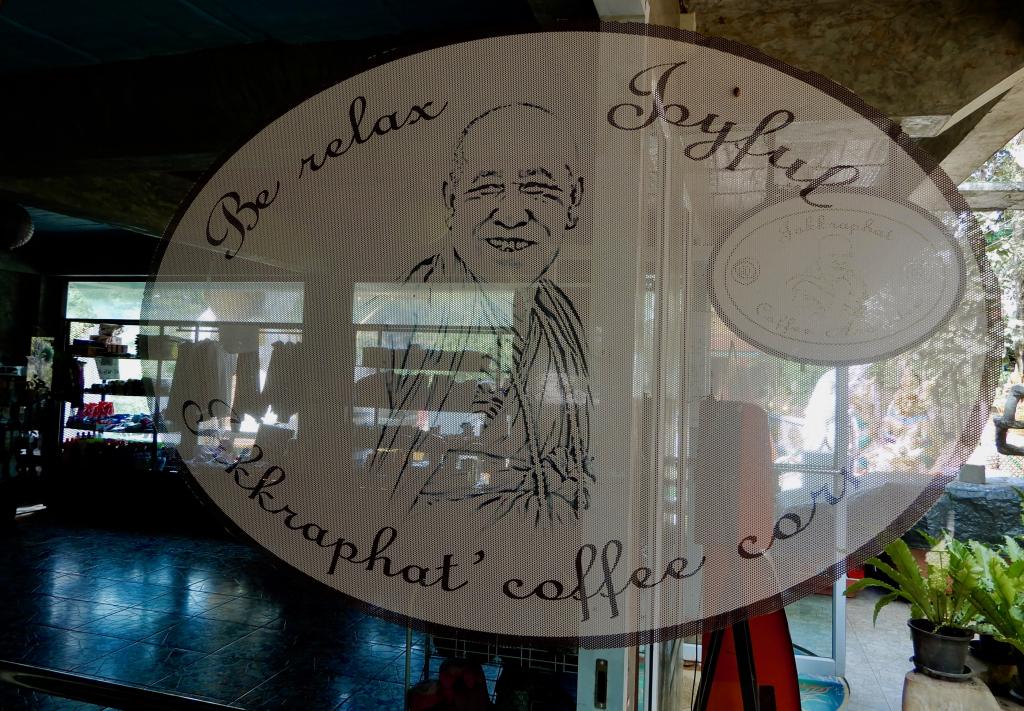 Be relax
Joyful
Sakkraphat
Coffee
Sakkraphat' coffee corr